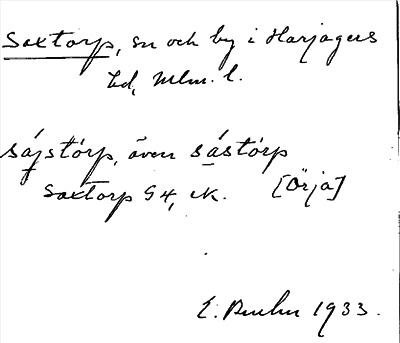 Saxtorp, sn och by i Harjagers
hd, Mlm. l.
sájstórp, även sástórp
Saxtorp G4, ck. [Örja]
E. 1933.